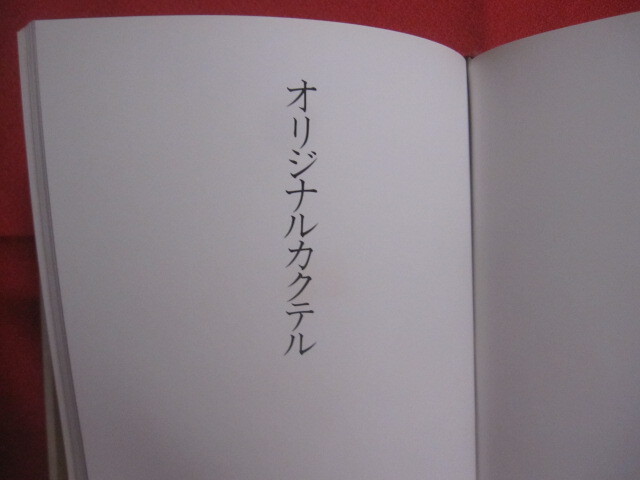 オリジナルカクテル